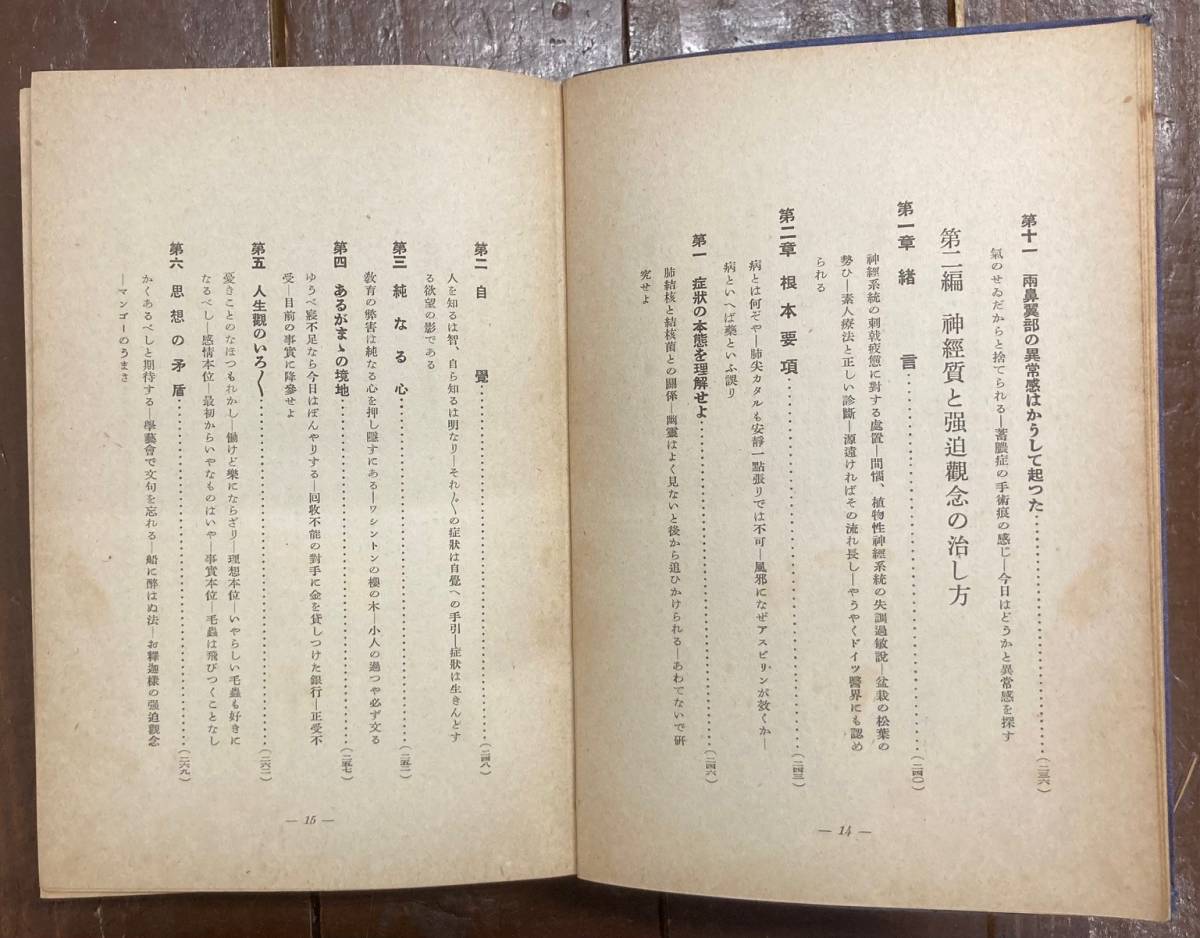 第十一 兩鼻翼部の異常感はかうして起つた…………(二三六)
氣のせゐだからと捨てられる―蓄膿症の手術痕の感じ―今日はどうかと異常感を探す
第二編 神經質と强迫觀念の治し方
第一章 緒言…………(二四〇)
神經系統の刺戟疲憊に對する處置―間惱、植物性神經系統の失調過敏說―盆栽の松葉の
勢ひ―素人療法と正しい診斷―源遠ければその流れ長し―やうやくドイツ醫界にも認め
られる
第二章 根本要項…………(二四三)
病とは何ぞや―肺尖カタルも安靜一點張りでは不可―風邪になぜアスピリンが效くか―
病といへば藥といふ誤り
第一 症狀の本態を理解せよ…………(二四六)
肺結核と結核菌との關係―幽靈はよく見ないと後から追ひかけられる―あわてないで硏
究せよ
― 14 ―
第二 自覺…………(二四八)
人を知るは智、自ら知るは明なり―それ〴〵の症狀は自覺への手引―症狀は生きんとす
る欲望の影である
第三 純なる心…………(二五二)
敎育の弊害は純なる心を押し隱すにある―ワシントンの櫻の木―小人の過つや必ず文る
第四 あるがまゝの境地…………(二五七)
ゆうべ寢不足なら今日はぼんやりする―回收不能の對手に金を貸しつけた銀行―正受不
受―目前の事實に降參せよ
第五 人生觀のいろ〳〵…………(二六二)
憂きことのなほつもれかし―働けど樂にならざり―理想本位―いやらしい毛蟲も好きに
なるべし―感情本位―最初からいやなものはいや―事實本位―毛蟲は飛びつくことなし
第六 思想の矛盾…………(二六九)
かくあるべしと期待する―學藝會で文句を忘れる―船に醉はぬ法―お釋迦樣の强迫觀念
―マンゴーのうまさ
― 15 ―